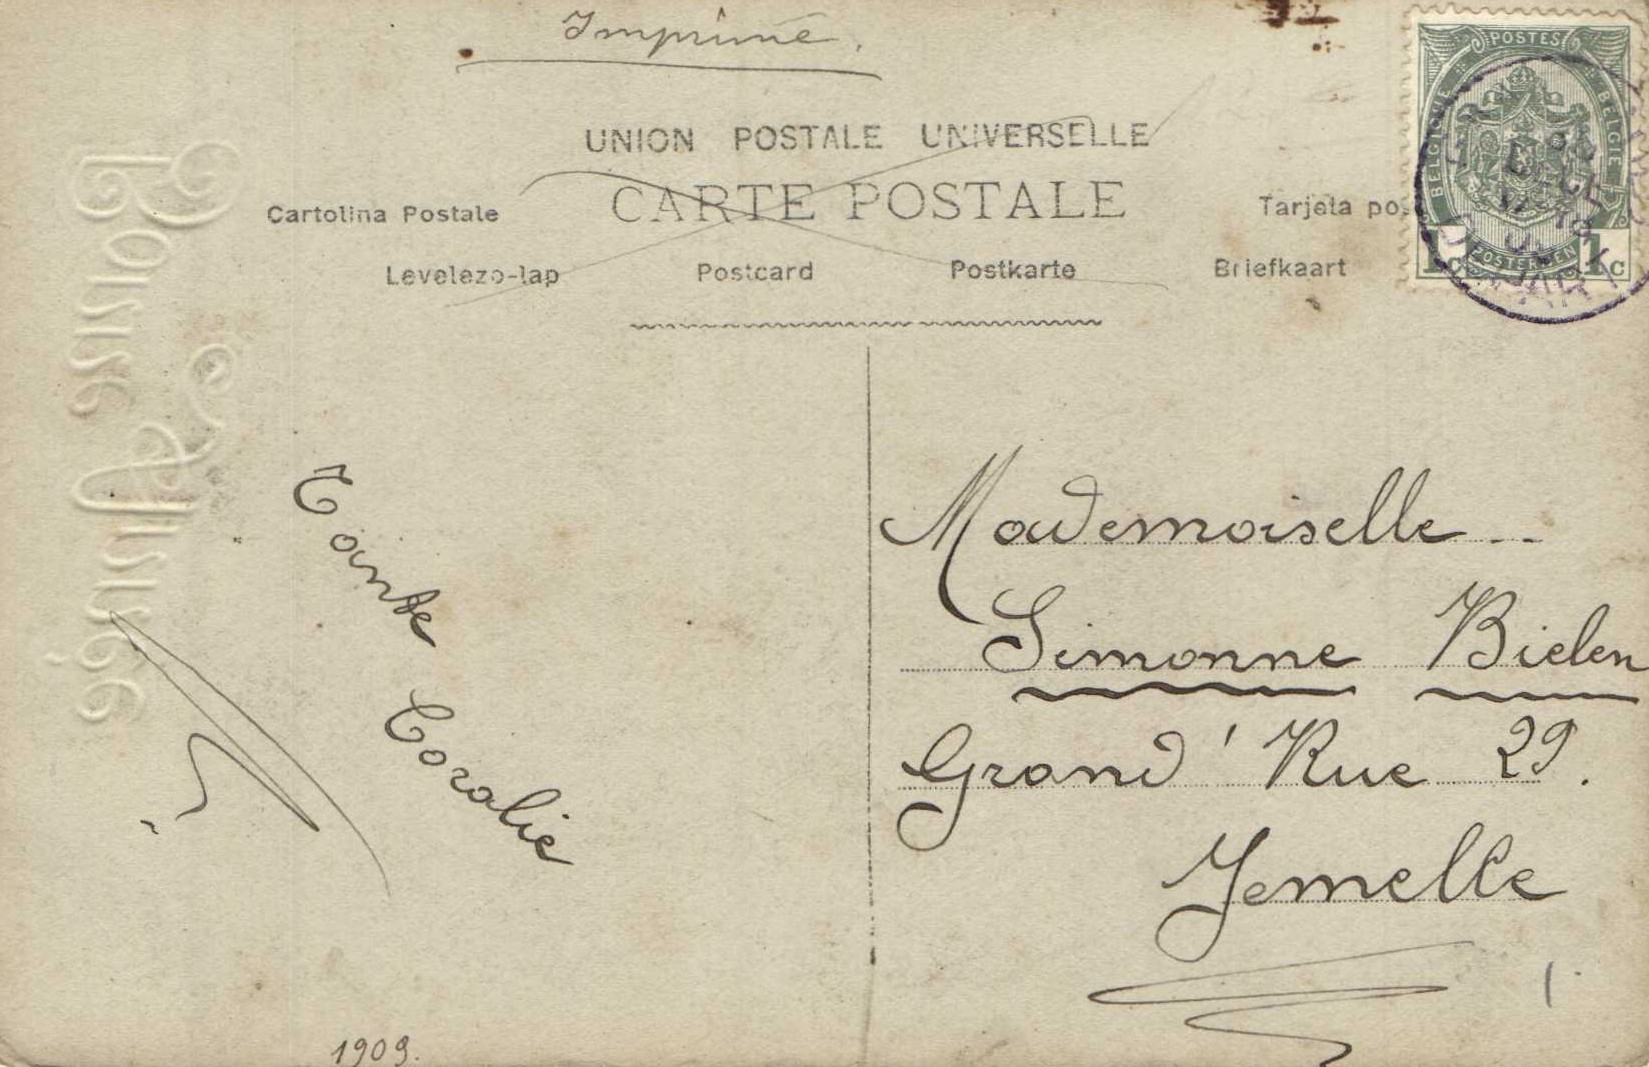 Imprimé.
UNION POSTALE UNIVERSELLE
CARTE POSTALE
Cartolina Postale
Tarjeta pos
Levelezo-lap Postcard Postkarte Briefkaart
POSTES
BELGIQUE
BELGIE
1c 1c
POSTERIJEN
DEPART
Bonne Année
Tante
Coralie
Mademoiselle
Simonne Bielen
Grand' Rue 29.
Jemelle
1909.